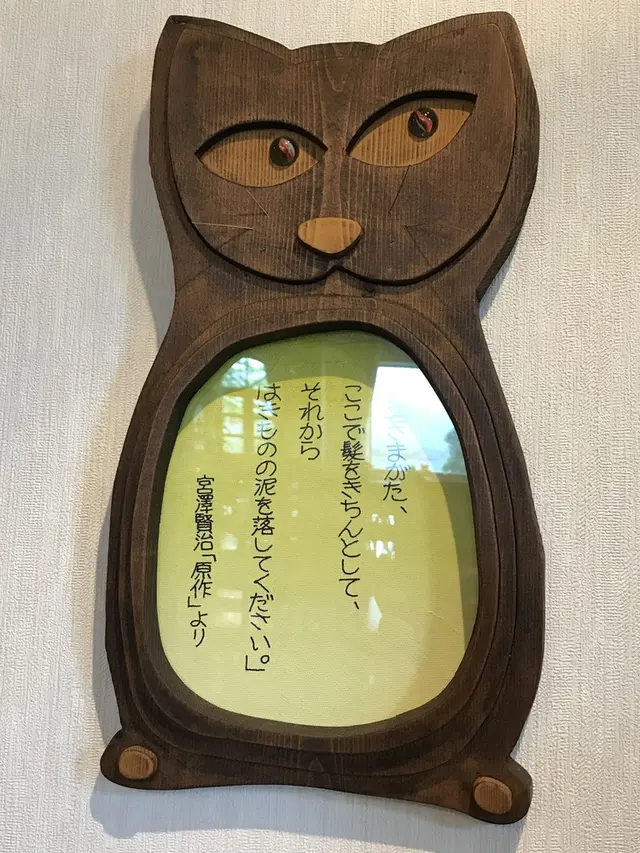 さまがた、
ここで髪をきちんとして、
それから
はきものの泥を落してください。」
宮澤賢治「原作」より